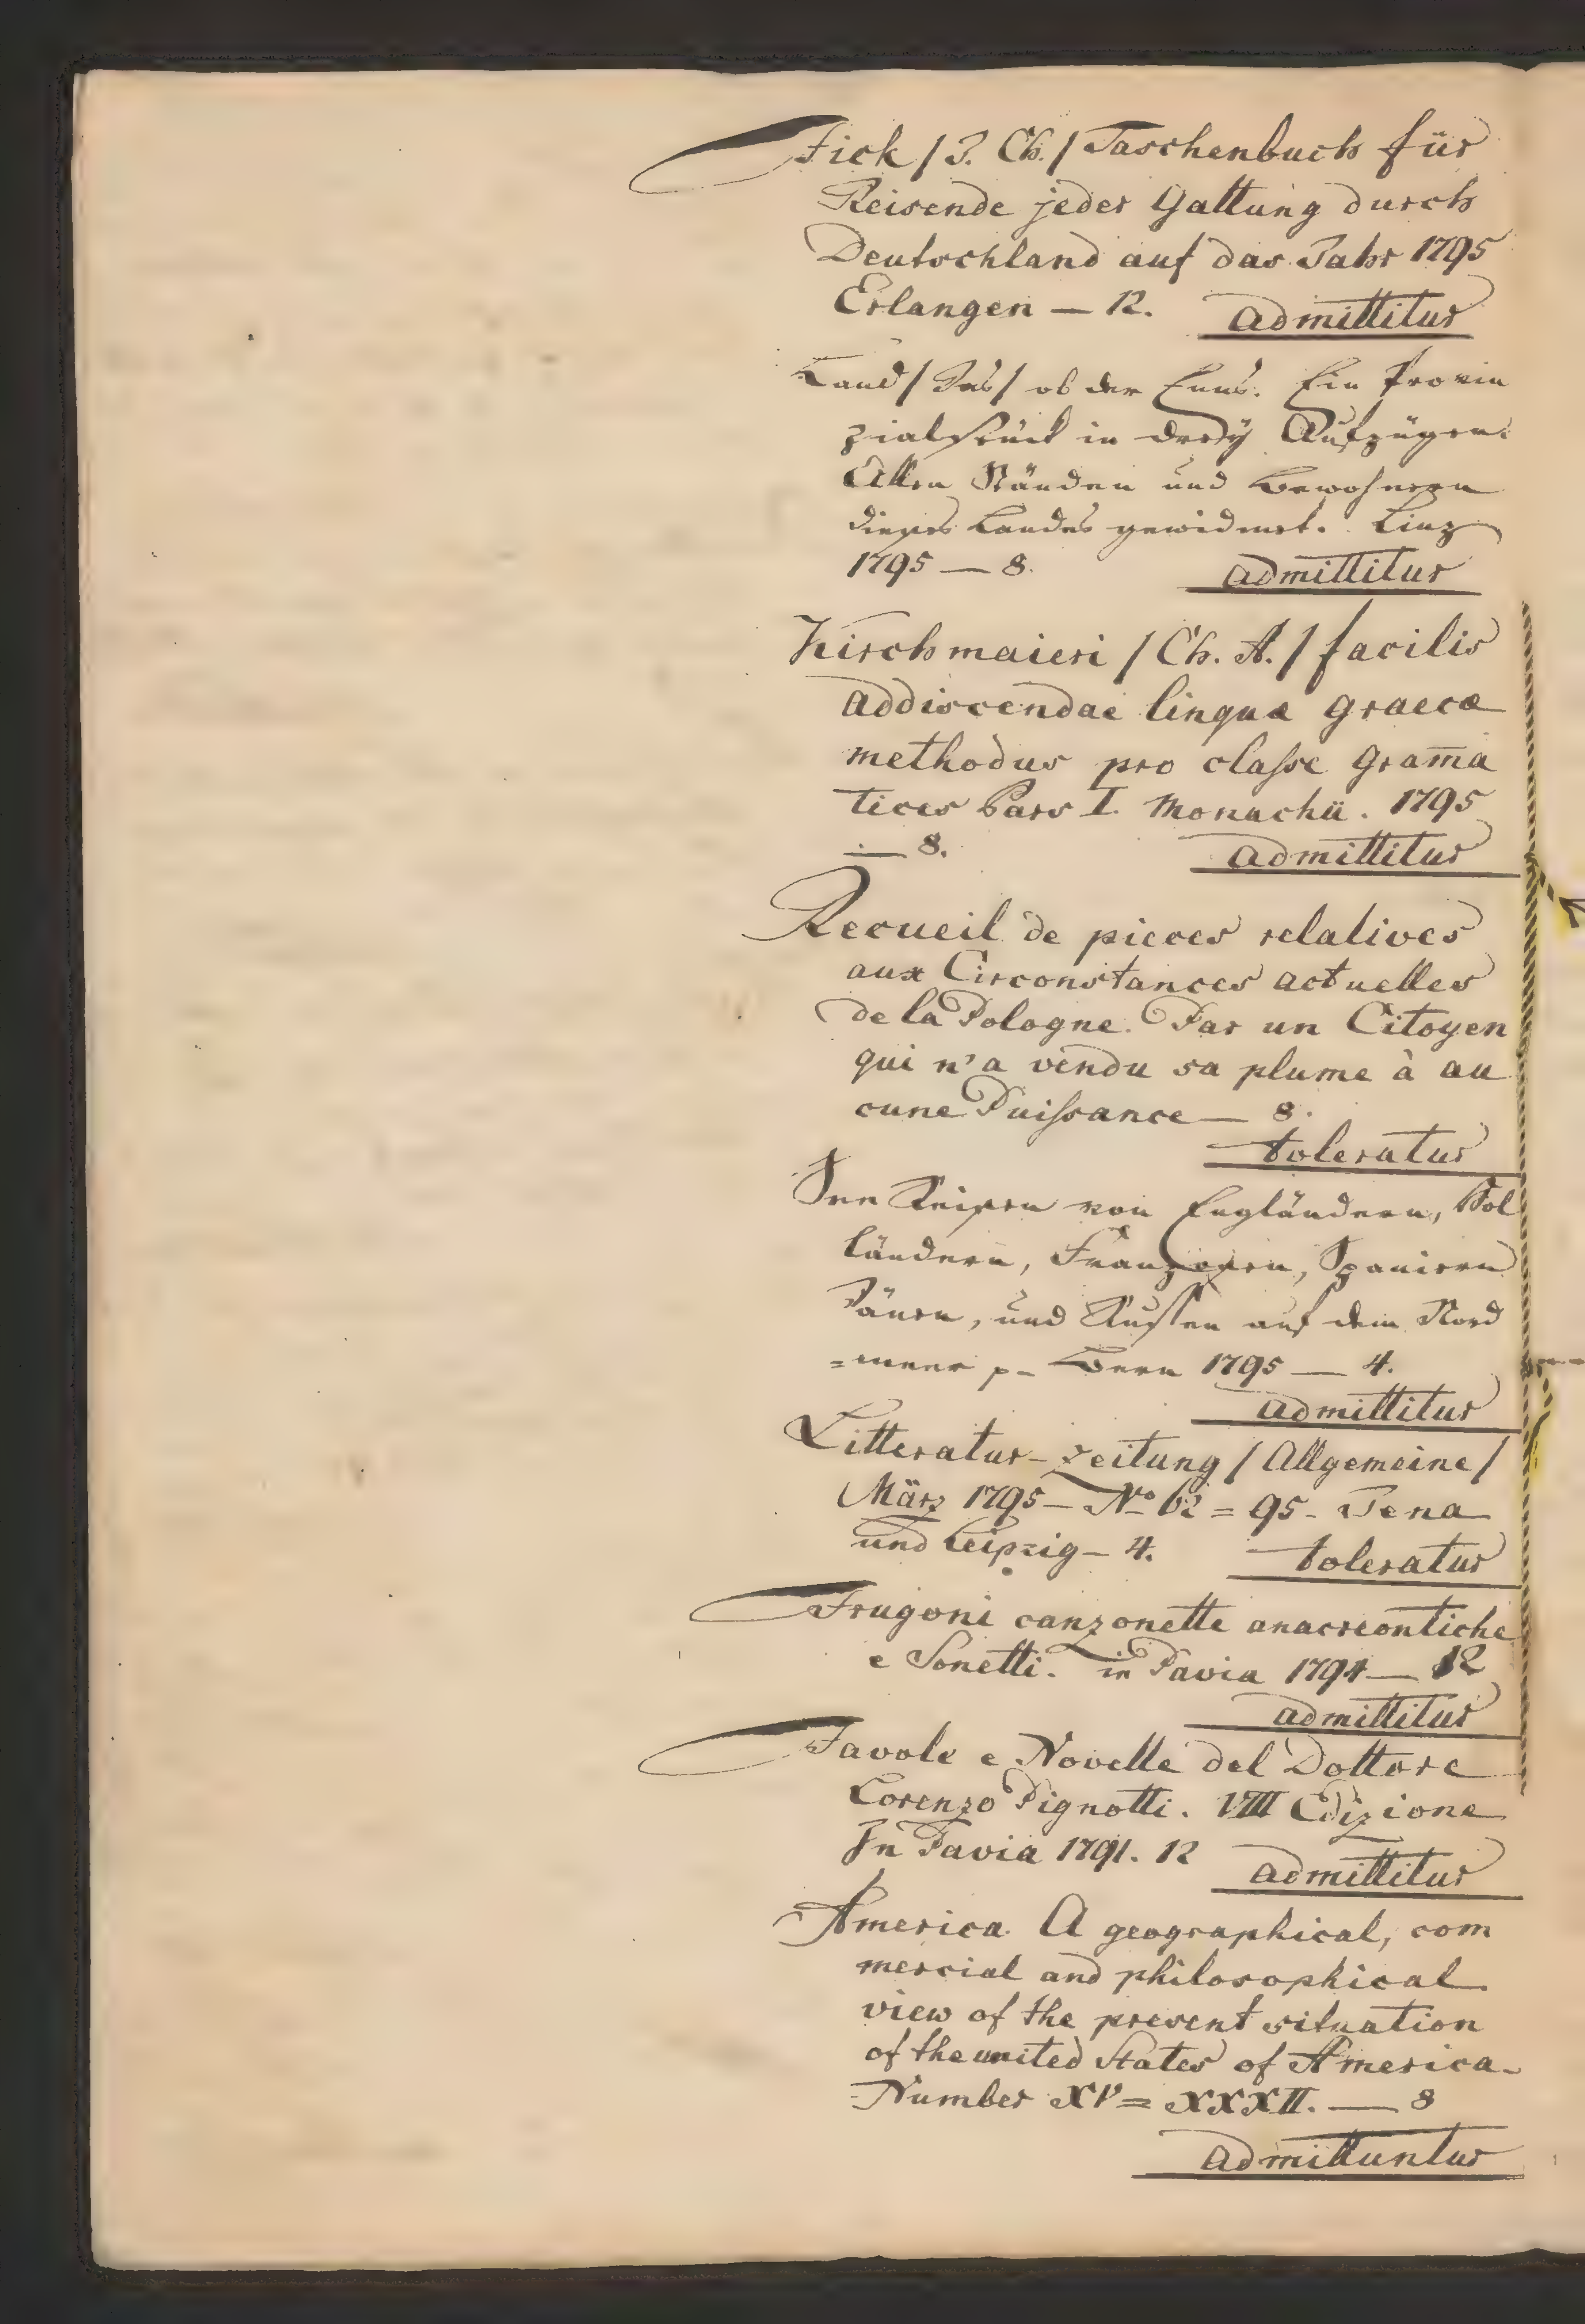 Fick / J. Ch. / Taschenbuch für
Reisende jeder Gattung durch
Deutschland auf das Jahr 1795
Erlangen — 12. admittitur
Land / Das / ob der Enns. Ein Provin
zialstück in dreÿ Aufzügen.
Allen Ständen und Bewohnern
dieses Landes gewidmet. Linz
1795 — 8. admittitur
Kirchmaieri / Ch. A. / facilis
addiscendae linguæ graecæ
methodus pro classe gram̅a
tices Pars I. Monachii. 1795
— 8. admittitur
Recueil de pieces relatives
aux Circonstances actuelles
de la Pologne. Par un Citoyen
qui n'a vendu sa plume à au
cune Puissance — 8.
toleratur
See Reisen von Engländern, Hol
ländern, Franzosen, Spaniern
Dänen, und Russen auf dem Nord
=meer p– Bern 1795 — 4.
admittitur
Litteratur-Zeitung / Allgemeine /
März 1795 – No 62 = 95 – Jena
und Leipzig – 4. toleratur
Frugoni canzonette anacreontiche
e Sonetti. in Pavia 1794 — 12
admittitur
Favole e Novelle del Dottore
Lorenzo Pignotti. VIII Edizione
In Pavia 1791. 12 admittitur
America. A geographical, com
mercial and philosophical
view of the present situation
of the united States of America.
Number XV = XXXII. — 8
admittuntur